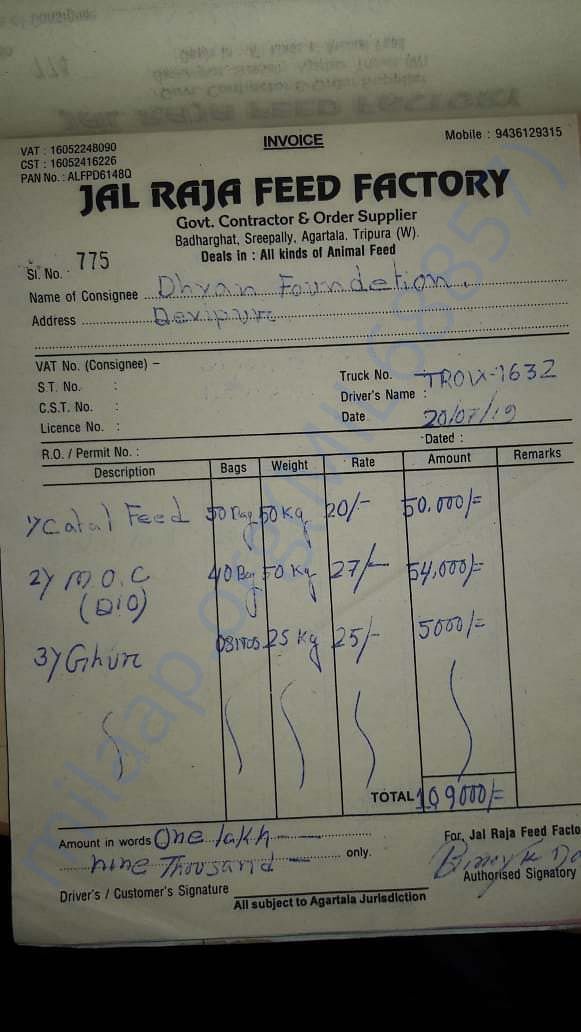 VAT : 16052248090
CST : 16052416226
PAN No. : ALFPD6148Q
INVOICE
Mobile : 9436129315
JAL RAJA FEED FACTORY
Govt. Contractor & Order Supplier
Badharghat, Sreepally, Agartala, Tripura (W).
Deals in : All kinds of Animal Feed
Sl. No. : 775
Name of Consignee Dhyan Foundetion.
Address Devipur
VAT No. (Consignee) –
S.T. No. :
C.S.T. No. :
Licence No. :
Truck No. TR01X-1632
Driver's Name :
Date 20/07/19
R.O. / Permit No. :
Dated :
Description Bags Weight Rate Amount Remarks
1) Catal Feed 50 Bag 50 Kg 20/- 50.000/=
2) M.O.C 40 Bag 50 Kg 27/- 54,000/=
3) Ghur 25 Kg 25/- 5000/=
TOTAL 109000/=
Amount in words One lakh
nine Thousand only.
For, Jal Raja Feed Facto
Authorised Signatory
Driver's / Customer's Signature
All subject to Agartala Jurisdiction